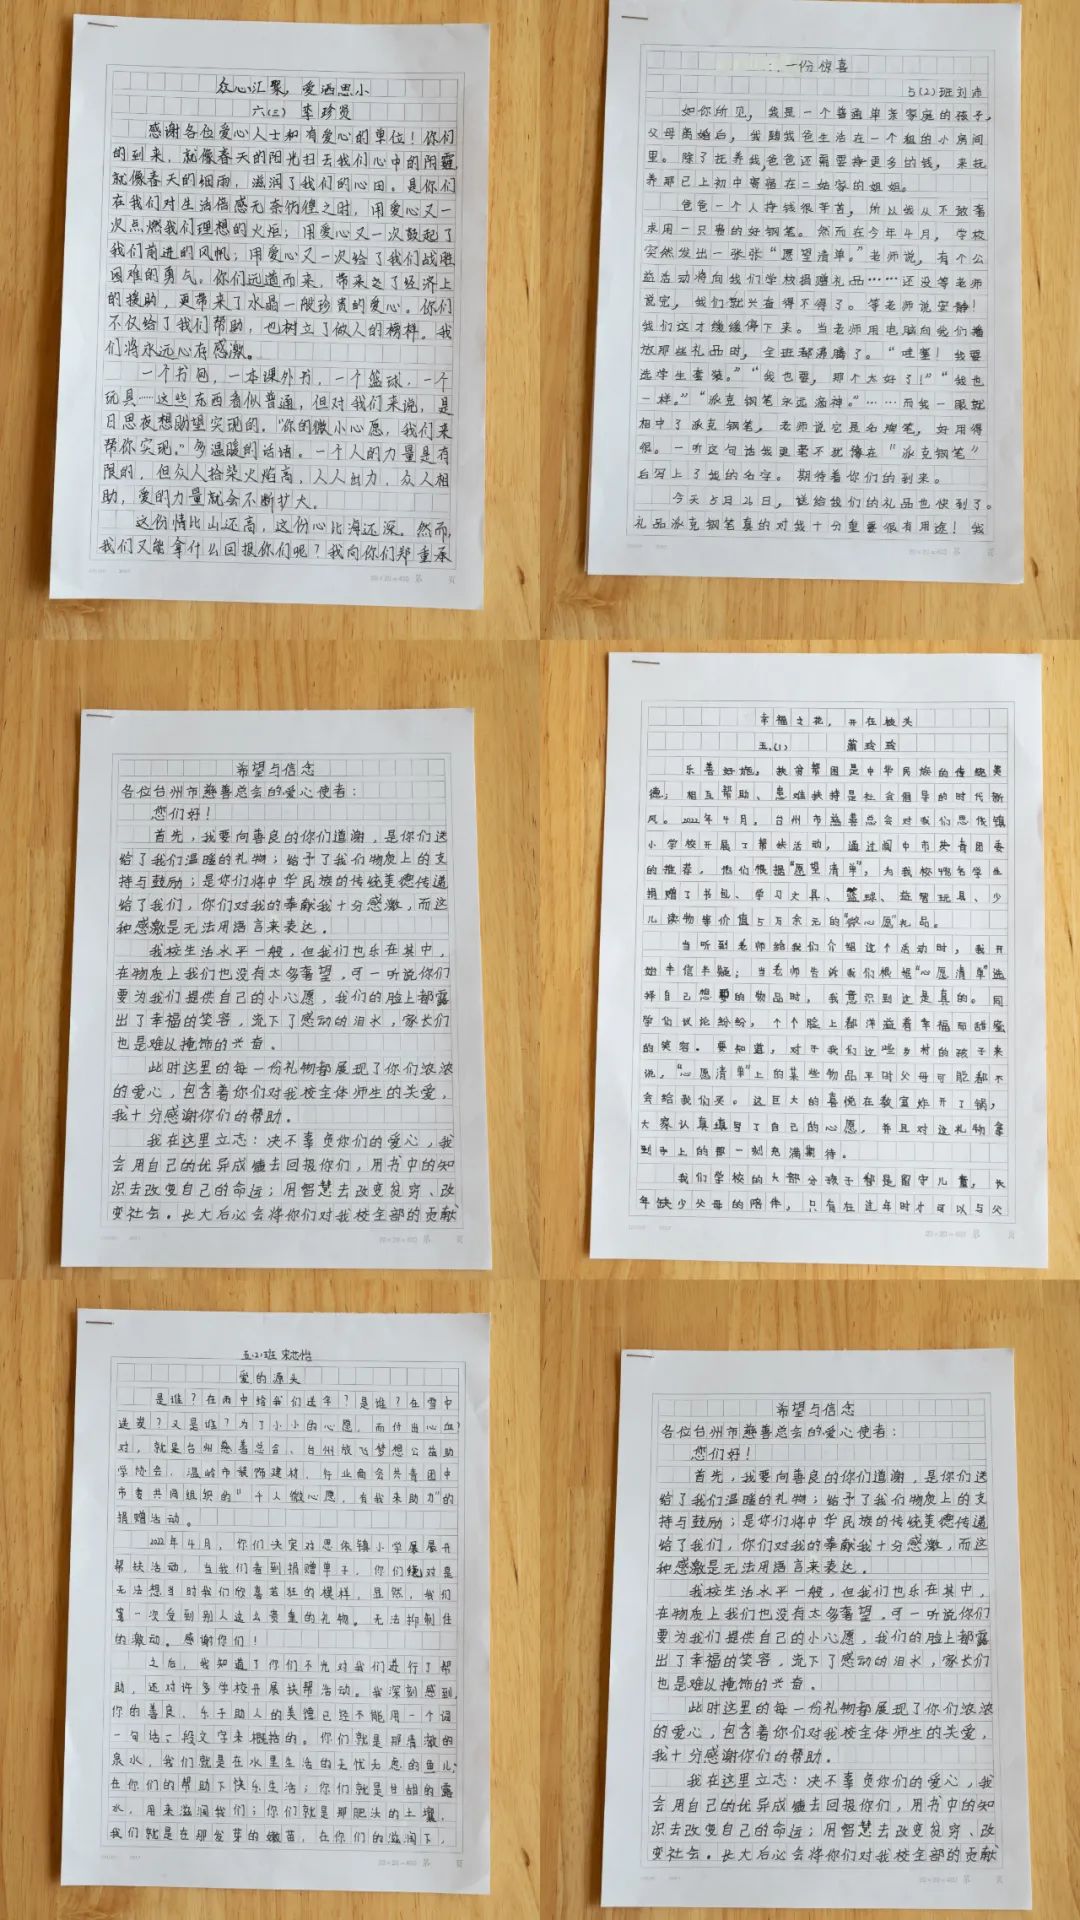 众心汇聚，爱洒思小
六(三) 李珍贤
感谢各位爱心人士和有爱心的单位！你们
的到来，就像春天的阳光扫去我们心中的阴霾，
就像春天的细雨，滋润了我们的心田。是你们
在我们对生活倍感无奈彷徨之时，用爱心又一
次点燃我们理想的火炬；用爱心又一次鼓起了
我们前进的风帆；用爱心又一次给了我们战胜
困难的勇气。你们远道而来，带来之了经济上
的援助，更带来了水晶一般珍贵的爱心。你们
不仅给了我们帮助，也树立了做人的榜样。我
们将永远心存感激。
一个书包，一本课外书，一个篮球，一个
玩具……这些东西看似普通，但对我们来说，是
日思夜想盼望实现的。“你的微小心愿，我们来
帮你实现。”多温暖的话语。一个人的力量是有
限的，但众人拾柴火焰高，人人出力，众人相
助，爱的力量就会不断扩大。
这份情比山还高，这份心比海还深。然而，
我们又能拿什么回报你们呢？我向你们郑重承
20×20=400 第 页
一份惊喜
5(2)班刘沛
如你所见，我是一个普通单亲家庭的孩子，
父母离婚后，我随我爸生活在一个租的小房间
里。除了抚养我，爸爸还需要挣更多的钱，来抚
养那已上初中寄宿在二姑家的姐姐。
爸爸一个人挣钱很辛苦，所以我从不敢奢
求用一只贵的好钢笔。然而在今年4月，学校
突然发出一张张“愿望清单。”老师说，有个公
益活动将向我们学校捐赠礼品……还没等老师
说完，我们就兴奋得不得了。等老师说安静！
我们这才缓缓停下来。当老师用电脑向我们播
放那些礼品时，全班都沸腾了。“哇塞！我要
选学生套装。”“我也要，那个太好了！”“我也
一样。”“派克钢笔永远滴神。”……而我一眼就
相中了派克钢笔，老师说它是名牌笔，好用得
很。一听这句话我更毫不犹豫在“派克钢笔”
后写上了我的名字。期待着你们的到来。
今天5月26日，送给我们的礼品也快到了。
礼品派克钢笔真的对我十分重要很有用途！我
20×20=400 第 页
希望与信念
各位台州市慈善总会的爱心使者：
您们好！
首先，我要向善良的你们道谢，是你们送
给了我们温暖的礼物；给予了我们物质上的支
持与鼓励；是你们将中华民族的传统美德传递
给了我们，你们对我的奉献我十分感激，而这
种感激是无法用语言来表达。
我校生活水平一般，但我们也乐在其中，
在物质上我们也没有太多奢望，可一听说你们
要为我们提供自己的小心愿，我们的脸上都露
出了幸福的笑容，流下了感动的泪水，家长们
也是难以掩饰的兴奋。
此时这里的每一份礼物都展现了你们浓浓
的爱心，包含着你们对我校全体师生的关爱，
我十分感谢你们的帮助。
我在这里立志：决不辜负你们的爱心，我
会用自己的优异成慩去回报你们，用书中的知
识去改变自己的命运；用智慧去改变贫穷、改
变社会。长大后必会将你们对我校全部的贡献
20×20=400 第 页
幸福之花，开在枝头
五.(1) 蒲玲玲
乐善好施，扶贫帮困是中华民族的传统美
德；相互帮助、患难扶持是社会倡导的时代新
风。2022年4月，台州市慈善总会对我们思依镇
小学校开展了帮扶活动，通过阆中市共青团委
的推荐，他们根据“愿望清单”，为我校498名学生
捐赠了书包、学习文具、篮球、益智玩具、少
儿读物等价值5万余元的“微心愿”礼品。
当听到老师给我们介绍这个活动时，我开
始半信半疑；当老师告诉我们根据“心愿清单”选
择自己想要的物品时，我意识到这是真的。同
学们议论纷纷，个个脸上都洋溢着幸福和甜蜜
的笑容。要知道，对于我们这些乡村的孩子来
说，“心愿清单”上的某些物品平时父母可能都不
会给我们买。这巨大的喜悦在教室炸开了锅，
大家认真填写了自己的心愿，并且对这礼物拿
到手上的那一刻充满期待。
我们学校的大部分孩子都是留守儿童，长
年缺少父母的陪伴，只有在过年时才可以与父
20×20=400 第 页
五(2)班 宋芯怡
爱的源头
是谁？在雨中给我们送伞？是谁？在雪中
送炭？又是谁？为了小小的心愿，而付出心血？
对，就是台州慈善总会、台州放飞梦想公益助
学协会、温岭市装饰建材、行业商会共青团中
市委共同组织的“千人微心愿，有我来助力”的
捐赠活动。
2022年4月，你们决定对思依镇小学展展开
帮扶活动，当我们看到捐赠单子，你们绝对是
无法想当时我们欣喜若狂的模样，显然，我们
第一次受到别人这么贵重的礼物。无法抑制住
的激动。感谢你们！
之后，我知道了你们不光对我们进行了帮
助，还对许多学校开展扶帮活动。我深刻感到，
你的善良、乐于助人的美德已经不能用一个词
一句话、一段文字来概括的。你们就是那清澈的
泉水，我们就是在水里生活的无忧无虑的鱼儿，
在你们的帮助下快乐生活；你们就是甘甜的露
水，用来滋润我们；你们就是那肥沃的土壤，
我们就是在那发芽的嫩苗，在你们的滋润下，
20×20=400 第 页
希望与信念
各位台州市慈善总会的爱心使者：
您们好！
首先，我要向善良的你们道谢，是你们送
给了我们温暖的礼物；给予了我们物质上的支
持与鼓励；是你们将中华民族的传统美德传递
给了我们，你们对我的奉献我十分感激，而这
种感激是无法用语言来表达。
我校生活水平一般，但我们也乐在其中，
在物质上我们也没有太多奢望，可一听说你们
要为我们提供自己的小心愿，我们的脸上都露
出了幸福的笑容，流下了感动的泪水，家长们
也是难以掩饰的兴奋。
此时这里的每一份礼物都展现了你们浓浓
的爱心，包含着你们对我校全体师生的关爱，
我十分感谢你们的帮助。
我在这里立志：决不辜负你们的爱心，我
会用自己的优异成慩去回报你们，用书中的知
识去改变自己的命运；用智慧去改变贫穷、改
变社会。长大后必会将你们对我校全部的贡献
20×20=400 第 页